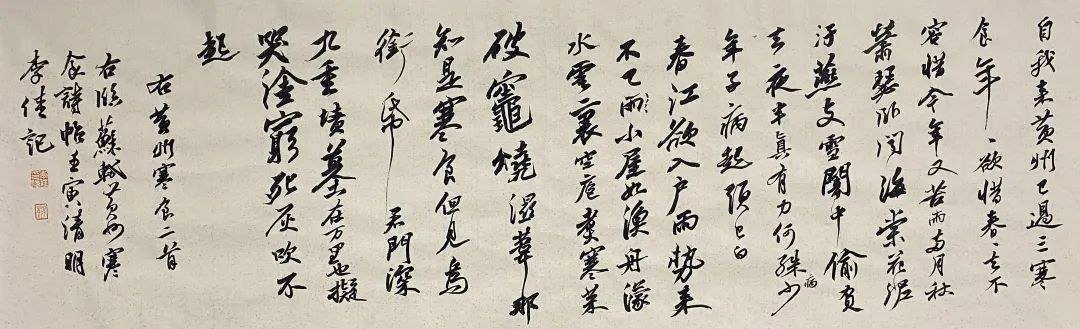 自我来黄州已過三寒
食年〻欲惜春〻去不
容惜今年又苦雨兩月秋
蕭瑟卧聞海棠花泥
汙燕支雪闇中偷負
去夜半真有力何殊少
病
年子病起頭已白
春江欲入户雨势来
不已雨小屋如漁舟濛
水雲裏空庖煮寒菜
破竈燒濕葦那
知是寒食但見烏
銜帋君門深
九重墳墓在万里也擬
哭塗窮死灰吹不
起
右黄州寒食二首
右臨蘇軾黄州寒
食詩帖壬寅清明
李佳記